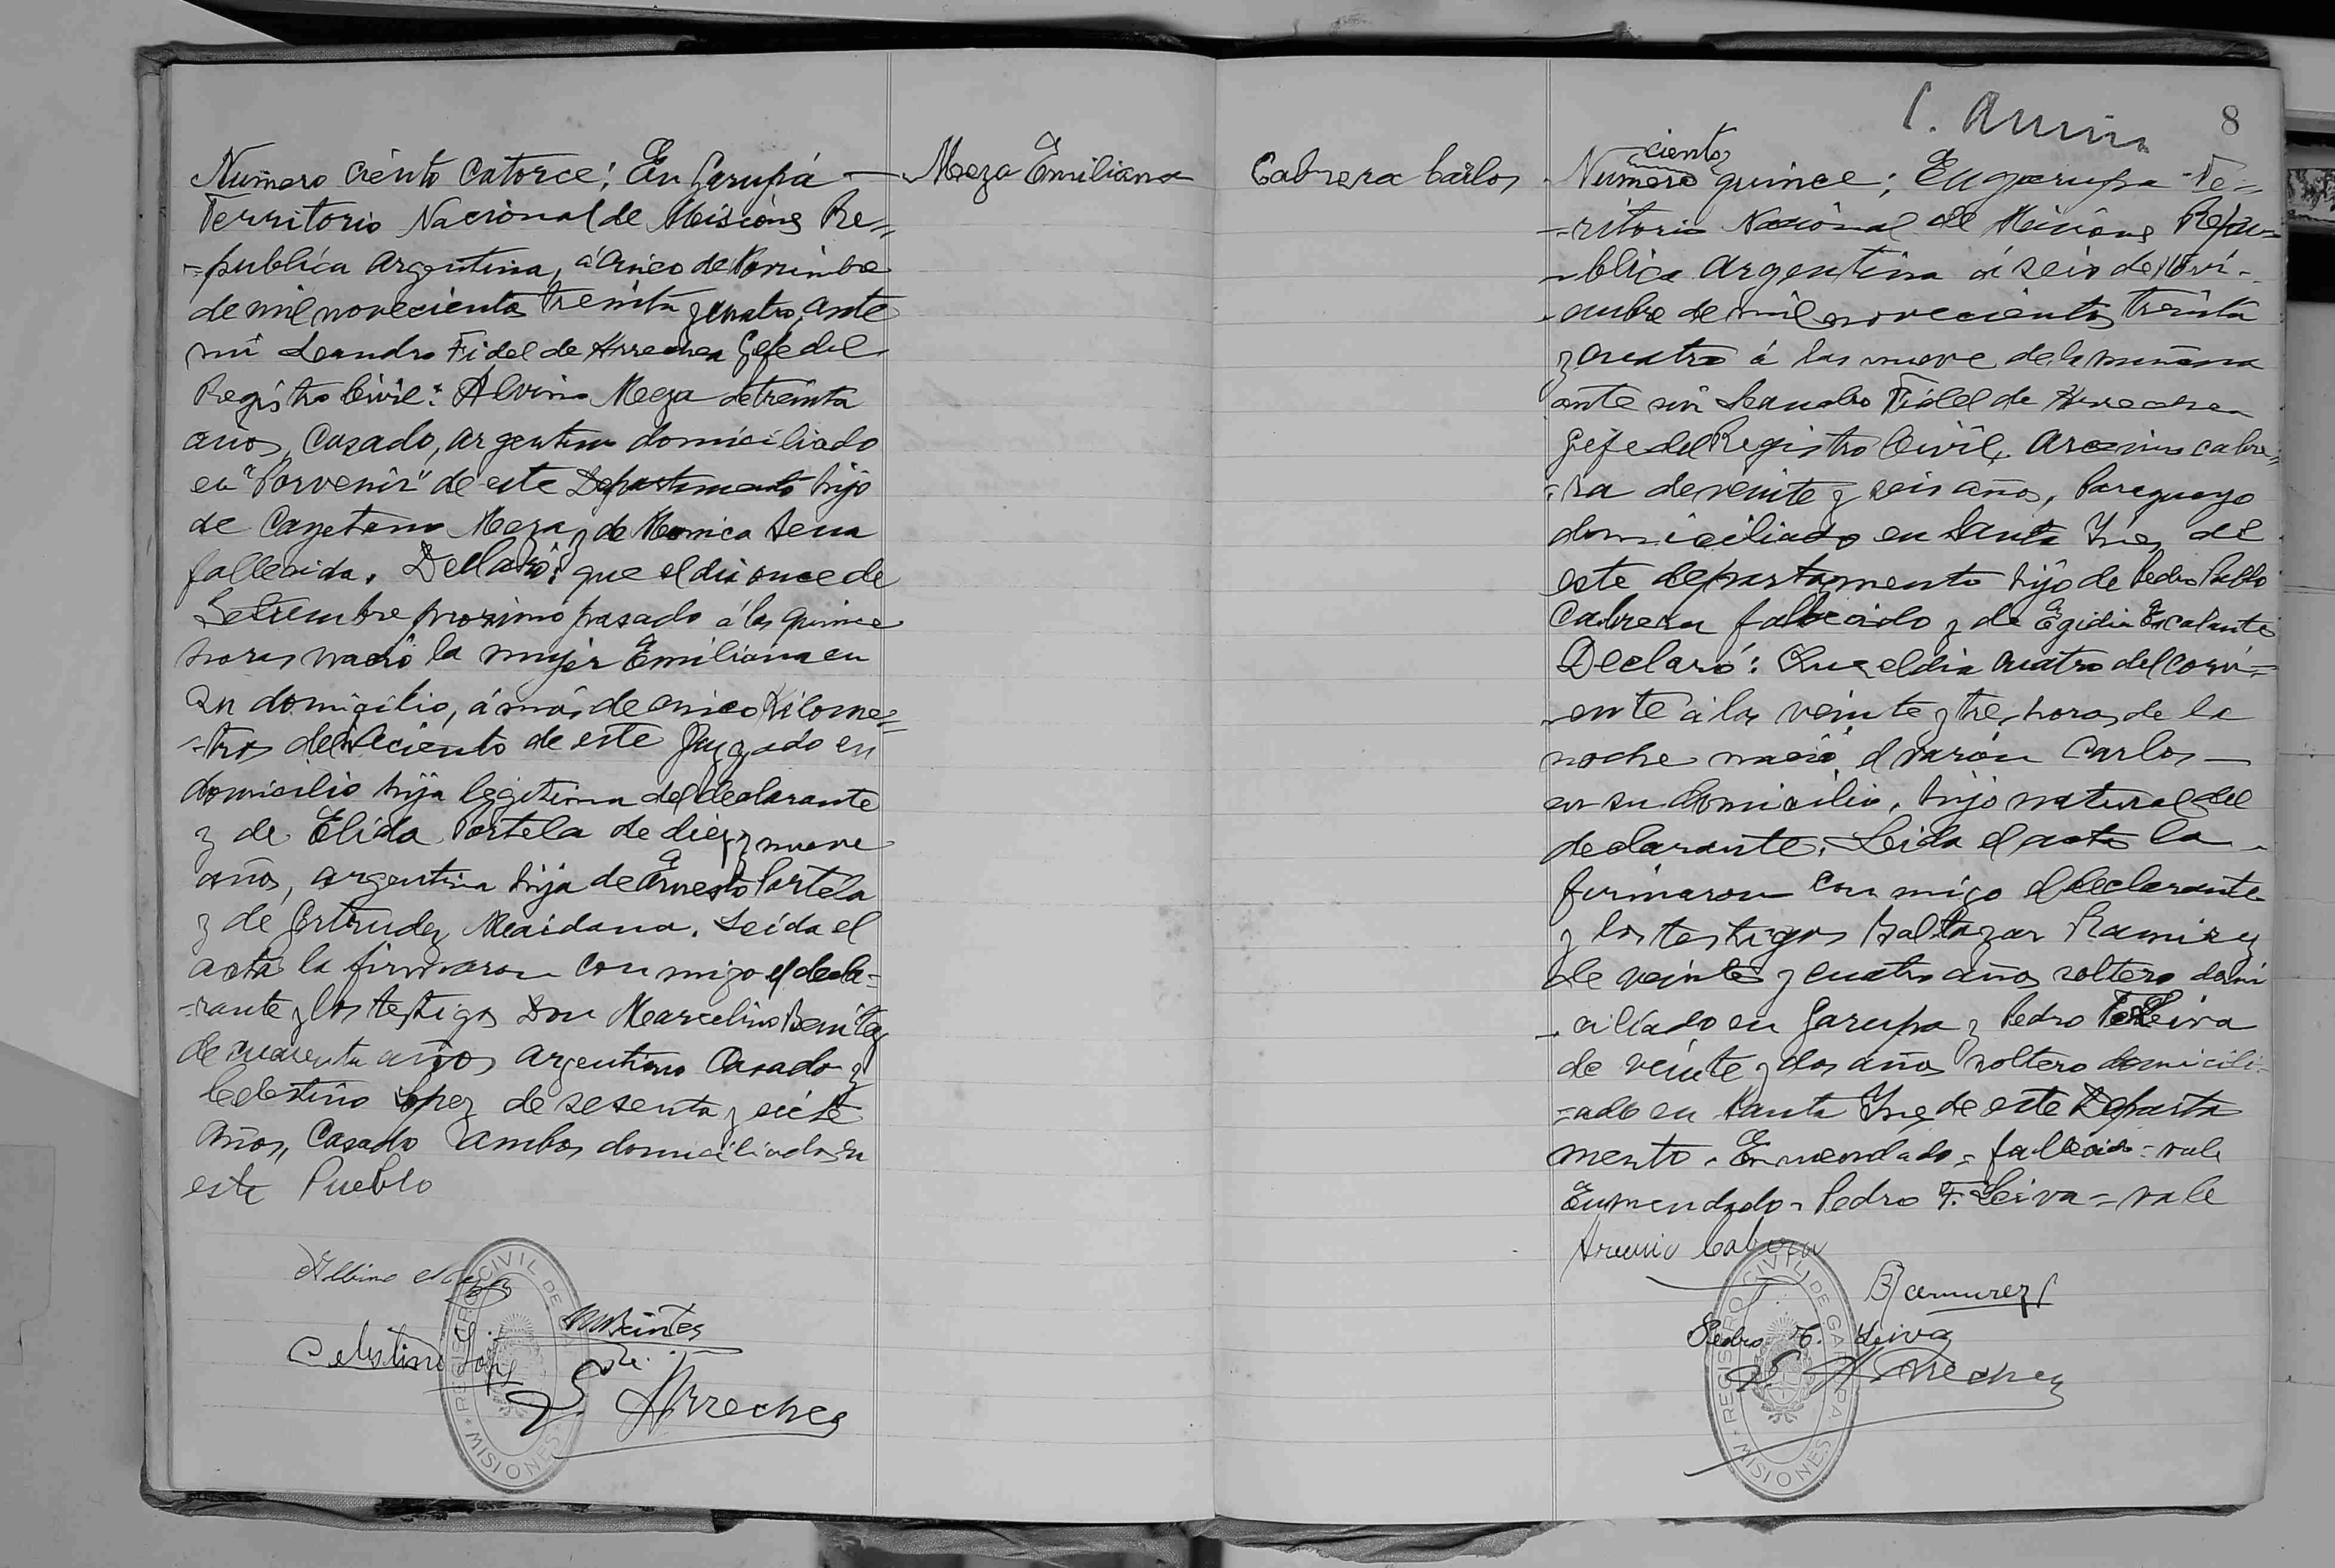 Número ciento catorce: En Garupá —
Territorio Nacional de Misiones Re=
=publica Argentina, á cinco de Noviembre
de mil novecientos treinta y cuatro, ante
mi Leandro Fidel de Arrechea Gefe del
Registro Civil: Alvino Meza de treinta
años, Casado, argentino domiciliado
en "Porvenir" de este Departamento hijo
de Cayetano Meza y de Monica Sena
fallecida. Declaró: que el dia once de
Setiembre proximo pasado á las quince
horas nació la mujer Emiliana en
su domicilio, á más de cinco Kilome=
=tros del asiento de este Juzgado en
domicilio hija legitima del declarante
y de Elida Portela de diez y nueve
años, argentina hija de Ernesto Portela
y de Gertrudes Maidana. Leida el
acta la firmaron con migo el decla=
=rante y los testigos Don Marcelino Benitez
de cuarenta años argentino Casado y
Celestino Lopez de sesenta y siete
años, Casado ambos domiciliados en
este Pueblo
Albino Meza
Celestino Lopez
L. Arrechea
REGISTRO CIVIL DE
MISIONES
Meza Emiliana
Cabrera Carlos
8
ciento
Número quince; En Garupa Te=
=rritorio Nacional de Misiones Repu=
=blica Argentina á seis de Novi-
-embre de mil novecientos treinta
y cuatro á las nueve de la mañana
ante mi Leandro Fidel de Arrechea
Gefe del Registro Civil, Arcenio Cabre=
=ra de veinte y seis años, Paraguayo
domiciliado en Santa Ines de
este departamento hijo de Pedro Pablo
Cabrera fallecido y de Egidia Escalante
Declaró: Que el dia cuatro del corri=
=ente á las veinte y tres horas de la
noche nació el varón Carlos —
en su domicilio, hijo natural del
declarante. Leida el acta la
firmaron con migo el declarante
y los testigos Baltazar Ramirez
de veinte y cuatro años soltero domi
-ciliado en Garupa y Pedro F. Leiva
de veinte y dos años soltero domicili=
=ado en Santa Ines de este Departa
mento. Enmendado = fallecido = vale
Enmendado = Pedro F. Leiva = vale
Arcenio Cabrera
B Ramirez
Pedro F. Leiva
L. Arrechea
REGISTRO CIVIL DE GARUPA
MISIONES